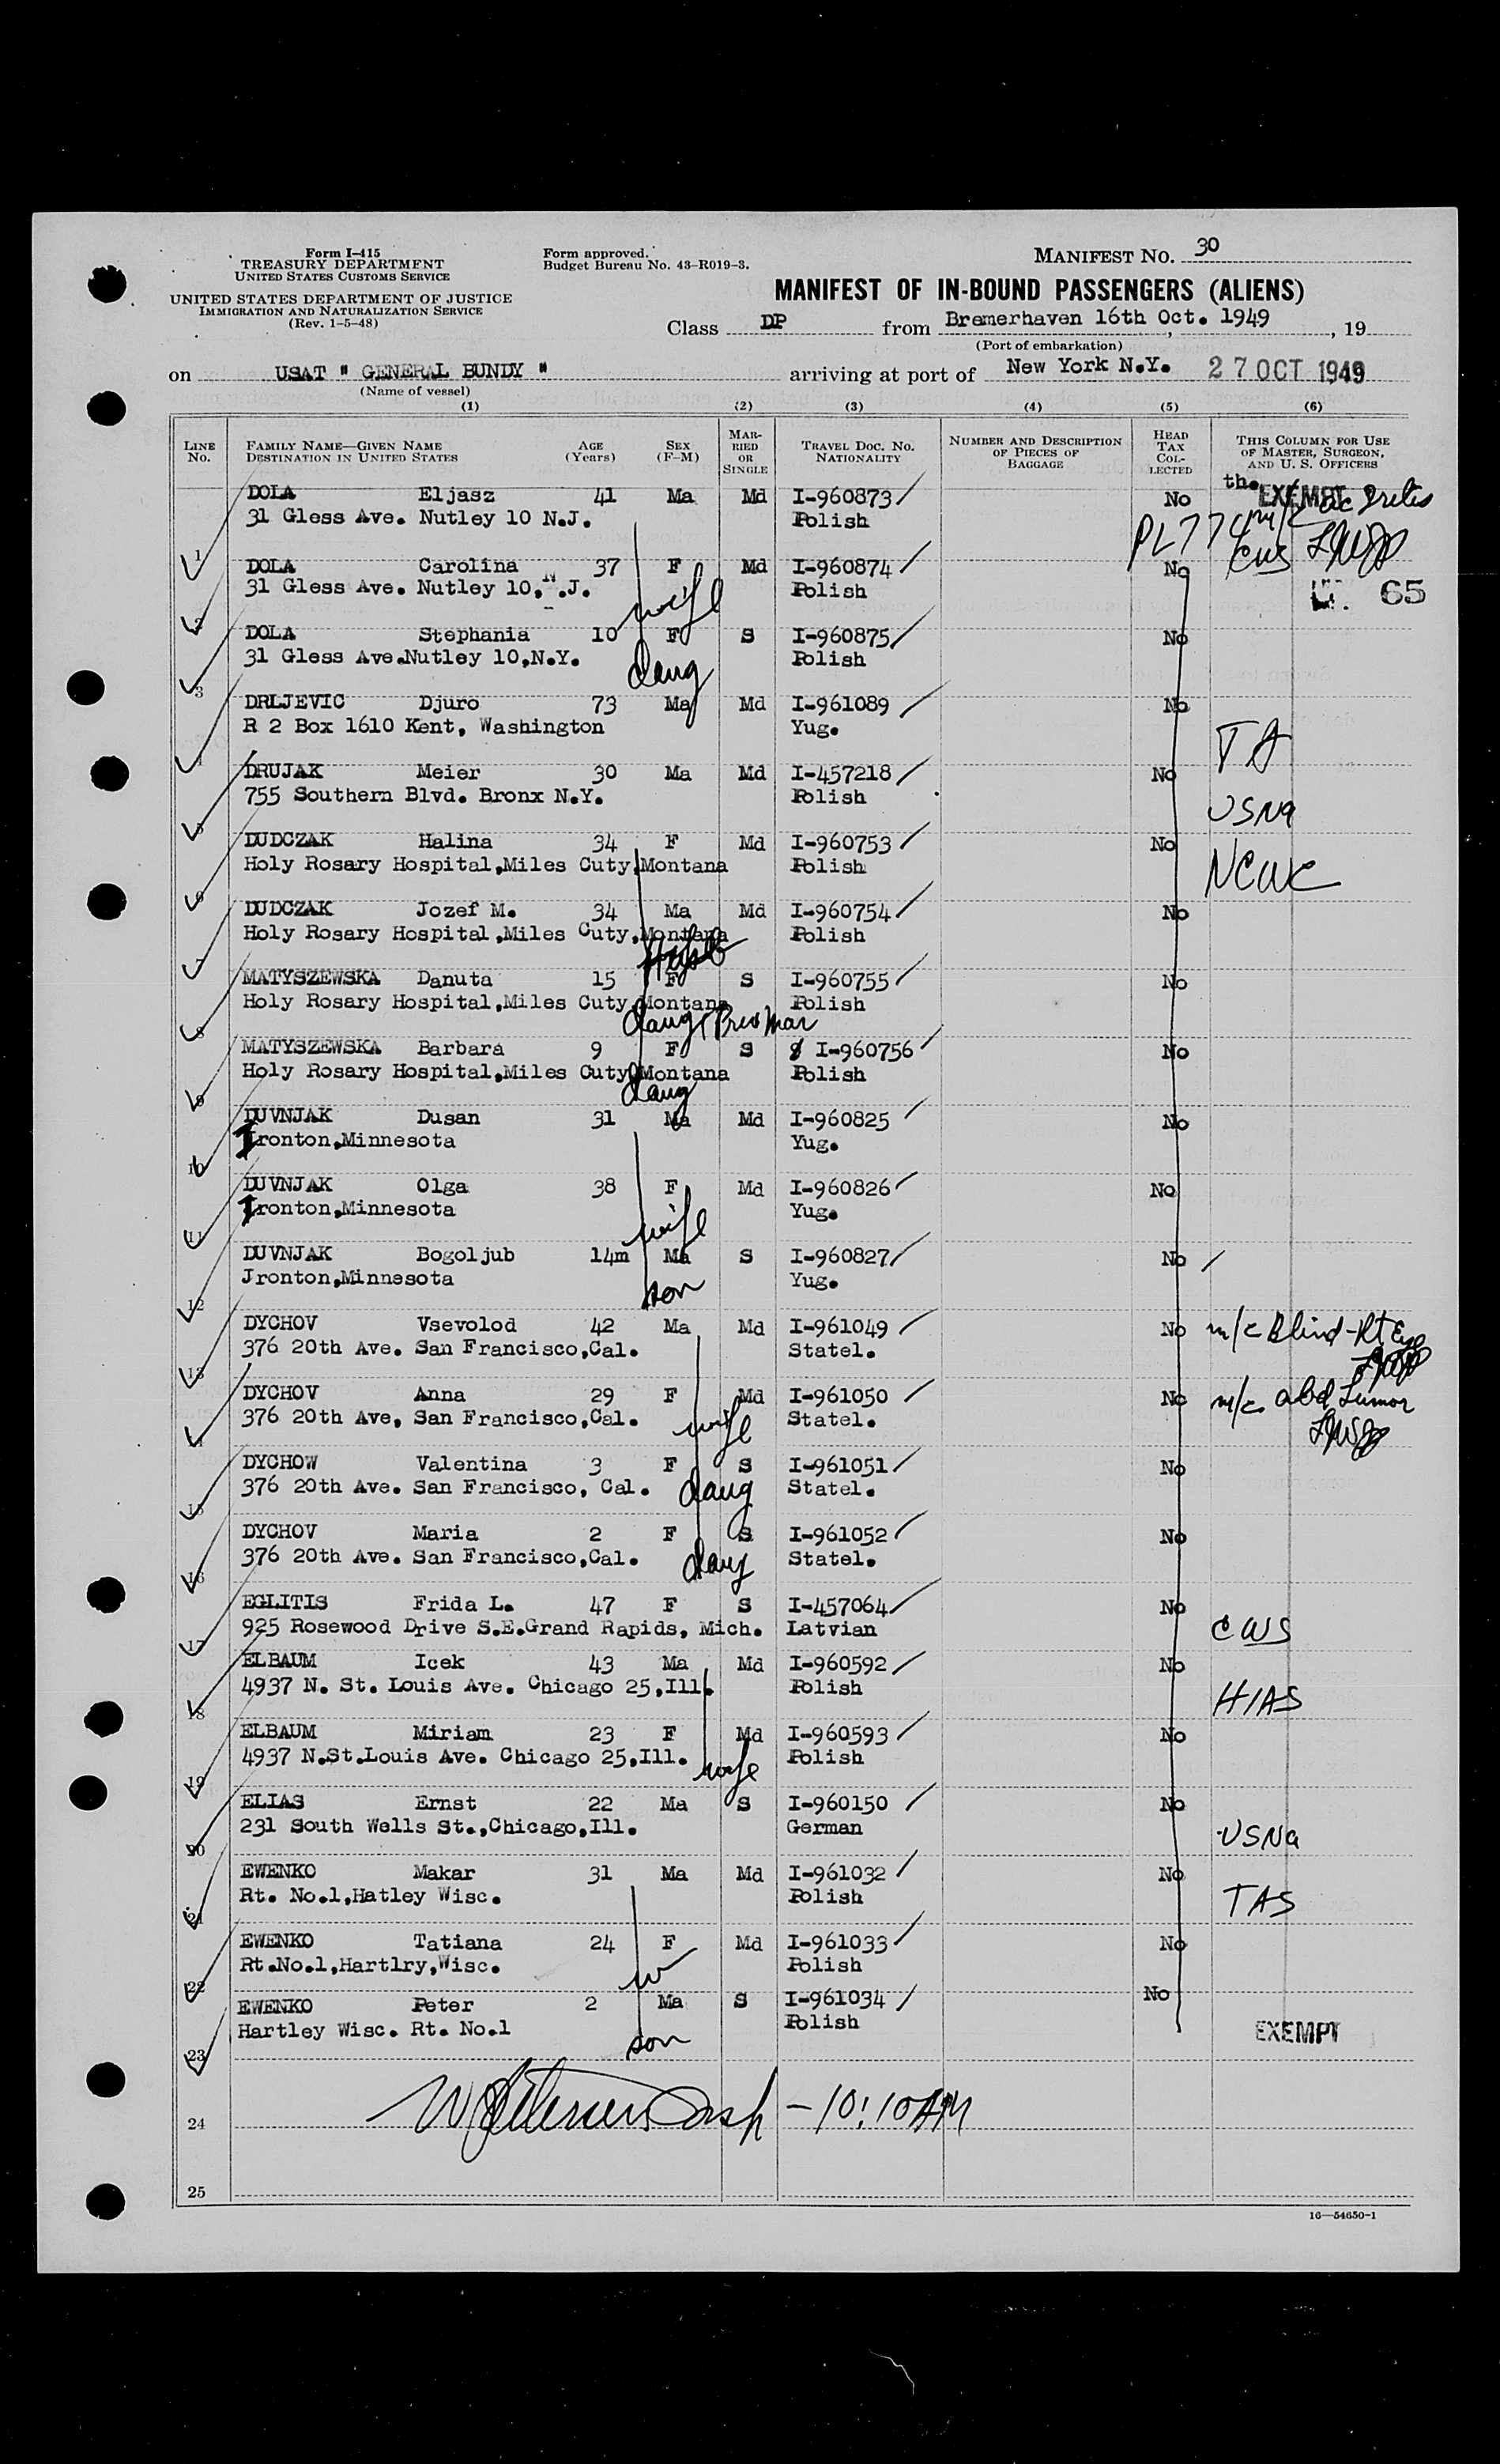 Form I-415
TREASURY DEPARTMENT
UNITED STATES CUSTOMS SERVICE
UNITED STATES DEPARTMENT OF JUSTICE
IMMIGRATION AND NATURALIZATION SERVICE
(Rev. 1-5-48)
Form approved.
Budget Bureau No. 43-R019-3.
MANIFEST NO. 30
MANIFEST OF IN-BOUND PASSENGERS (ALIENS)
Class DP from Bremerhaven 16th Oct. 1949, 19
(Port of embarkation)
on USAT " GENERAL BUNDY " arriving at port of New York N.Y. 27 OCT 1949
(Name of vessel)
(1) (2) (3) (4) (5) (6)
LINE No. FAMILY NAME—GIVEN NAME DESTINATION IN UNITED STATES AGE (Years) SEX (F-M) MARRIED OR SINGLE TRAVEL DOC. NO. NATIONALITY NUMBER AND DESCRIPTION OF PIECES OF BAGGAGE HEAD TAX COLLECTED THIS COLUMN FOR USE OF MASTER, SURGEON, AND U. S. OFFICERS
DOLA Eljasz 41 Ma Md I-960873 No the EXEMPT
31 Gless Ave. Nutley 10 N.J. Polish PL774 CWS
1 DOLA Carolina 37 F Md I-960874 No
31 Gless Ave. Nutley 10, N.J. wife Polish 65
2 DOLA Stephania 10 F S I-960875 No
31 Gless Ave.Nutley 10,N.Y. daug Polish
3 DRLJEVIC Djuro 73 Ma Md I-961089 No
R 2 Box 1610 Kent, Washington Yug.
4 DRUJAK Meier 30 Ma Md I-457218 No
755 Southern Blvd. Bronx N.Y. Polish USNa
5 DUDCZAK Halina 34 F Md I-960753 No
Holy Rosary Hospital,Miles Cuty,Montana Polish NCWC
6 DUDCZAK Jozef M. 34 Ma Md I-960754 No
Holy Rosary Hospital,Miles Cuty,Montana Polish
7 Husb
MATYSZEWSKA Danuta 15 F S I-960755 No
Holy Rosary Hospital,Miles Cuty,Montana Polish
8 daug Prev Mar
MATYSZEWSKA Barbara 9 F S I-960756 No
Holy Rosary Hospital,Miles Cuty,Montana Polish
9 daug
DUVNJAK Dusan 31 Ma Md I-960825 No
Ironton,Minnesota Yug.
10 DUVNJAK Olga 38 F Md I-960826 No
Ironton,Minnesota Yug.
11 wife
DUVNJAK Bogoljub 14m Ma S I-960827 No
Jronton,Minnesota Yug.
12 son
DYCHOV Vsevolod 42 Ma Md I-961049 No m/c Blind-Rt Eye
376 20th Ave. San Francisco,Cal. Statel.
13 DYCHOV Anna 29 F Md I-961050 No m/c abd Tumor
376 20th Ave, San Francisco,Cal. wife Statel.
14 DYCHOW Valentina 3 F S I-961051 No
376 20th Ave. San Francisco, Cal. daug Statel.
15 DYCHOV Maria 2 F S I-961052 No
376 20th Ave. San Francisco,Cal. daug Statel.
16 EGLITIS Frida L. 47 F S I-457064 No
925 Rosewood Drive S.E.Grand Rapids, Mich. Latvian CWS
17 ELBAUM Icek 43 Ma Md I-960592 No
4937 N. St. Louis Ave. Chicago 25,Ill. Polish HIAS
18 ELBAUM Miriam 23 F Md I-960593 No
4937 N.St.Louis Ave. Chicago 25,Ill. wife Polish
19 ELIAS Ernst 22 Ma S I-960150 No
231 South Wells St.,Chicago,Ill. German USNa
20 EWENKO Makar 31 Ma Md I-961032 No
Rt. No.1,Hatley Wisc. Polish TAS
21 EWENKO Tatiana 24 F Md I-961033 No
Rt.No.1,Hartlry,Wisc. w Polish
22 EWENKO Peter 2 Ma S I-961034 No
Hartley Wisc. Rt. No.1 son Polish EXEMPT
23
24 - 10:10 AM
25
16—54650-1